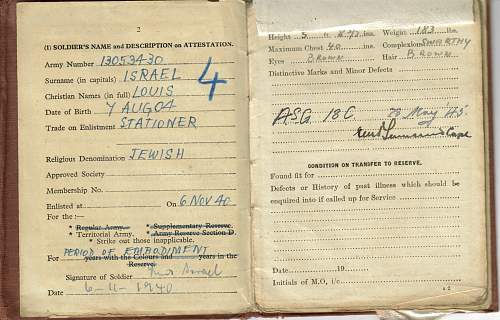 2
(1) SOLDIER'S NAME and DESCRIPTION on ATTESTATION.
Army Number 13053430
Surname (in capitals) ISRAEL
4
Christian Names (in full) LOUIS
Date of Birth 7 AUG 04
Trade on Enlistment STATIONER
Religious Denomination JEWISH
Approved Society
Membership No.
Enlisted at On 6 NOV 40
For the :—
* Regular Army. * Supplementary Reserve.
* Territorial Army. * Army Reserve Section D.
* Strike out those inapplicable.
PERIOD OF EMBODIMENT
For years with the Colours and years in the
Reserve.
Signature of Soldier Israel
Date 6-11-1940
Height 5 ft. ins. Weight 183 lbs.
Maximum Chest 40 ins. Complexion SWARTHY
Eyes BROWN Hair BROWN
Distinctive Marks and Minor Defects
ASG 18C. May
Capt
CONDITION ON TRANSFER TO RESERVE.
Found fit for
Defects or History of past illness which should be
enquired into if called up for Service
Date 19
Initials of M.O. i/c